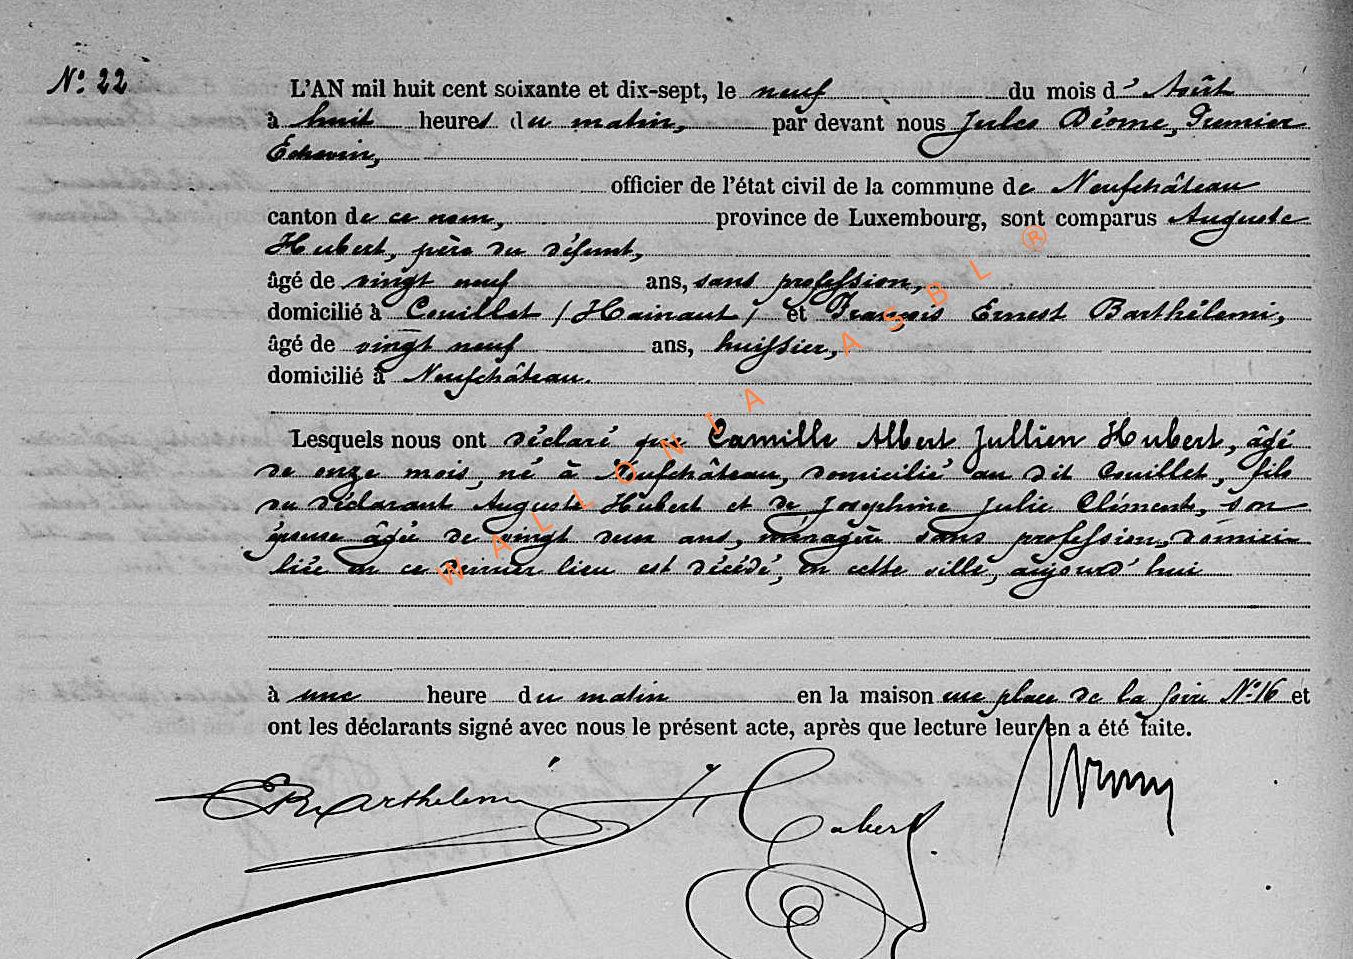 N.° 22
L'AN mil huit cent soixante et dix-sept, le neuf du mois d' Août
à huit heures du matin, par devant nous Jules Diome, Premier
Échevin,
officier de l'état civil de la commune de Neufchâteau
canton de ce nom, province de Luxembourg, sont comparus Auguste
Hubert, père du défunt,
âgé de vingt neuf ans, sans profession,
domicilié à Couillet (Hainaut) et François Ernest Barthélemi,
âgé de vingt neuf ans, huissier,
domicilié à Neufchâteau.
Lesquels nous ont déclaré que Camille Albert Jullien Hubert, âgé
de onze mois, né à Neufchâteau, domicilié au dit Couillet, fils
du déclarant Auguste Hubert et de Josephine Julie Cléments, son
épouse âgée de vingt deux ans, ménagère sans profession, domici-
liée en ce dernier lieu est décédé, en cette ville, aujourd'hui
à une heure du matin en la maison une place de la foire N° 16 et
ont les déclarants signé avec nous le présent acte, après que lecture leur en a été faite.
EBarthélemi Hubert
WALLONIA ASBL ®